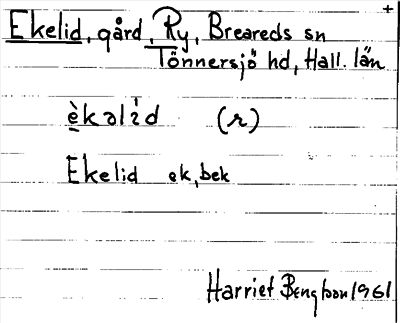 +
Ekelid, gård, Ry, Breareds sn
Tönnersjö hd, Hall. län
èkəlìd (r)
Ekelid ek, bek
Harriet Bengtson 1961